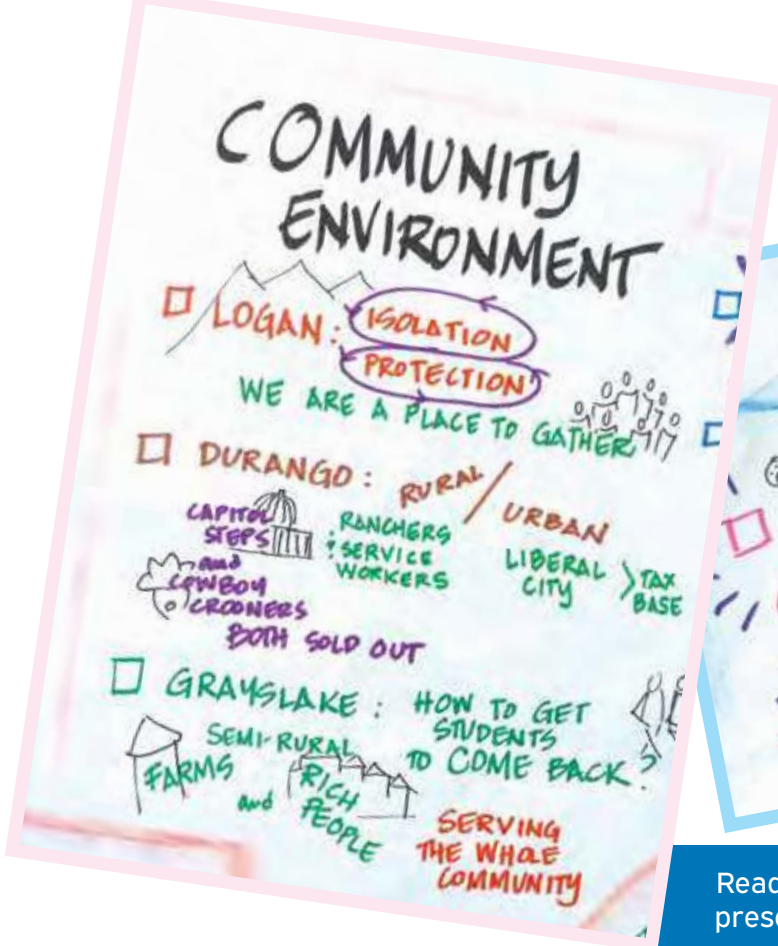 COMMUNITY
ENVIRONMENT
LOGAN: ISOLATION
PROTECTION
WE ARE A PLACE TO GATHER
DURANGO: RURAL / URBAN
CAPITOL
STEPS
and
COWBOY
CROONERS
BOTH SOLD OUT
RANCHERS
& SERVICE
WORKERS
LIBERAL
CITY
> TAX
BASE
GRAYSLAKE: HOW TO GET
STUDENTS
TO COME BACK?
SEMI-RURAL
FARMS
and
RICH
PEOPLE
SERVING
THE WHOLE
COMMUNITY
Read
prese